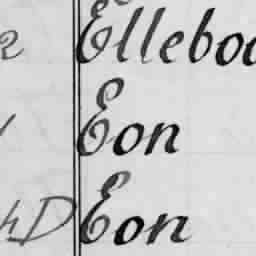 Elleboo
Eon
D Eon